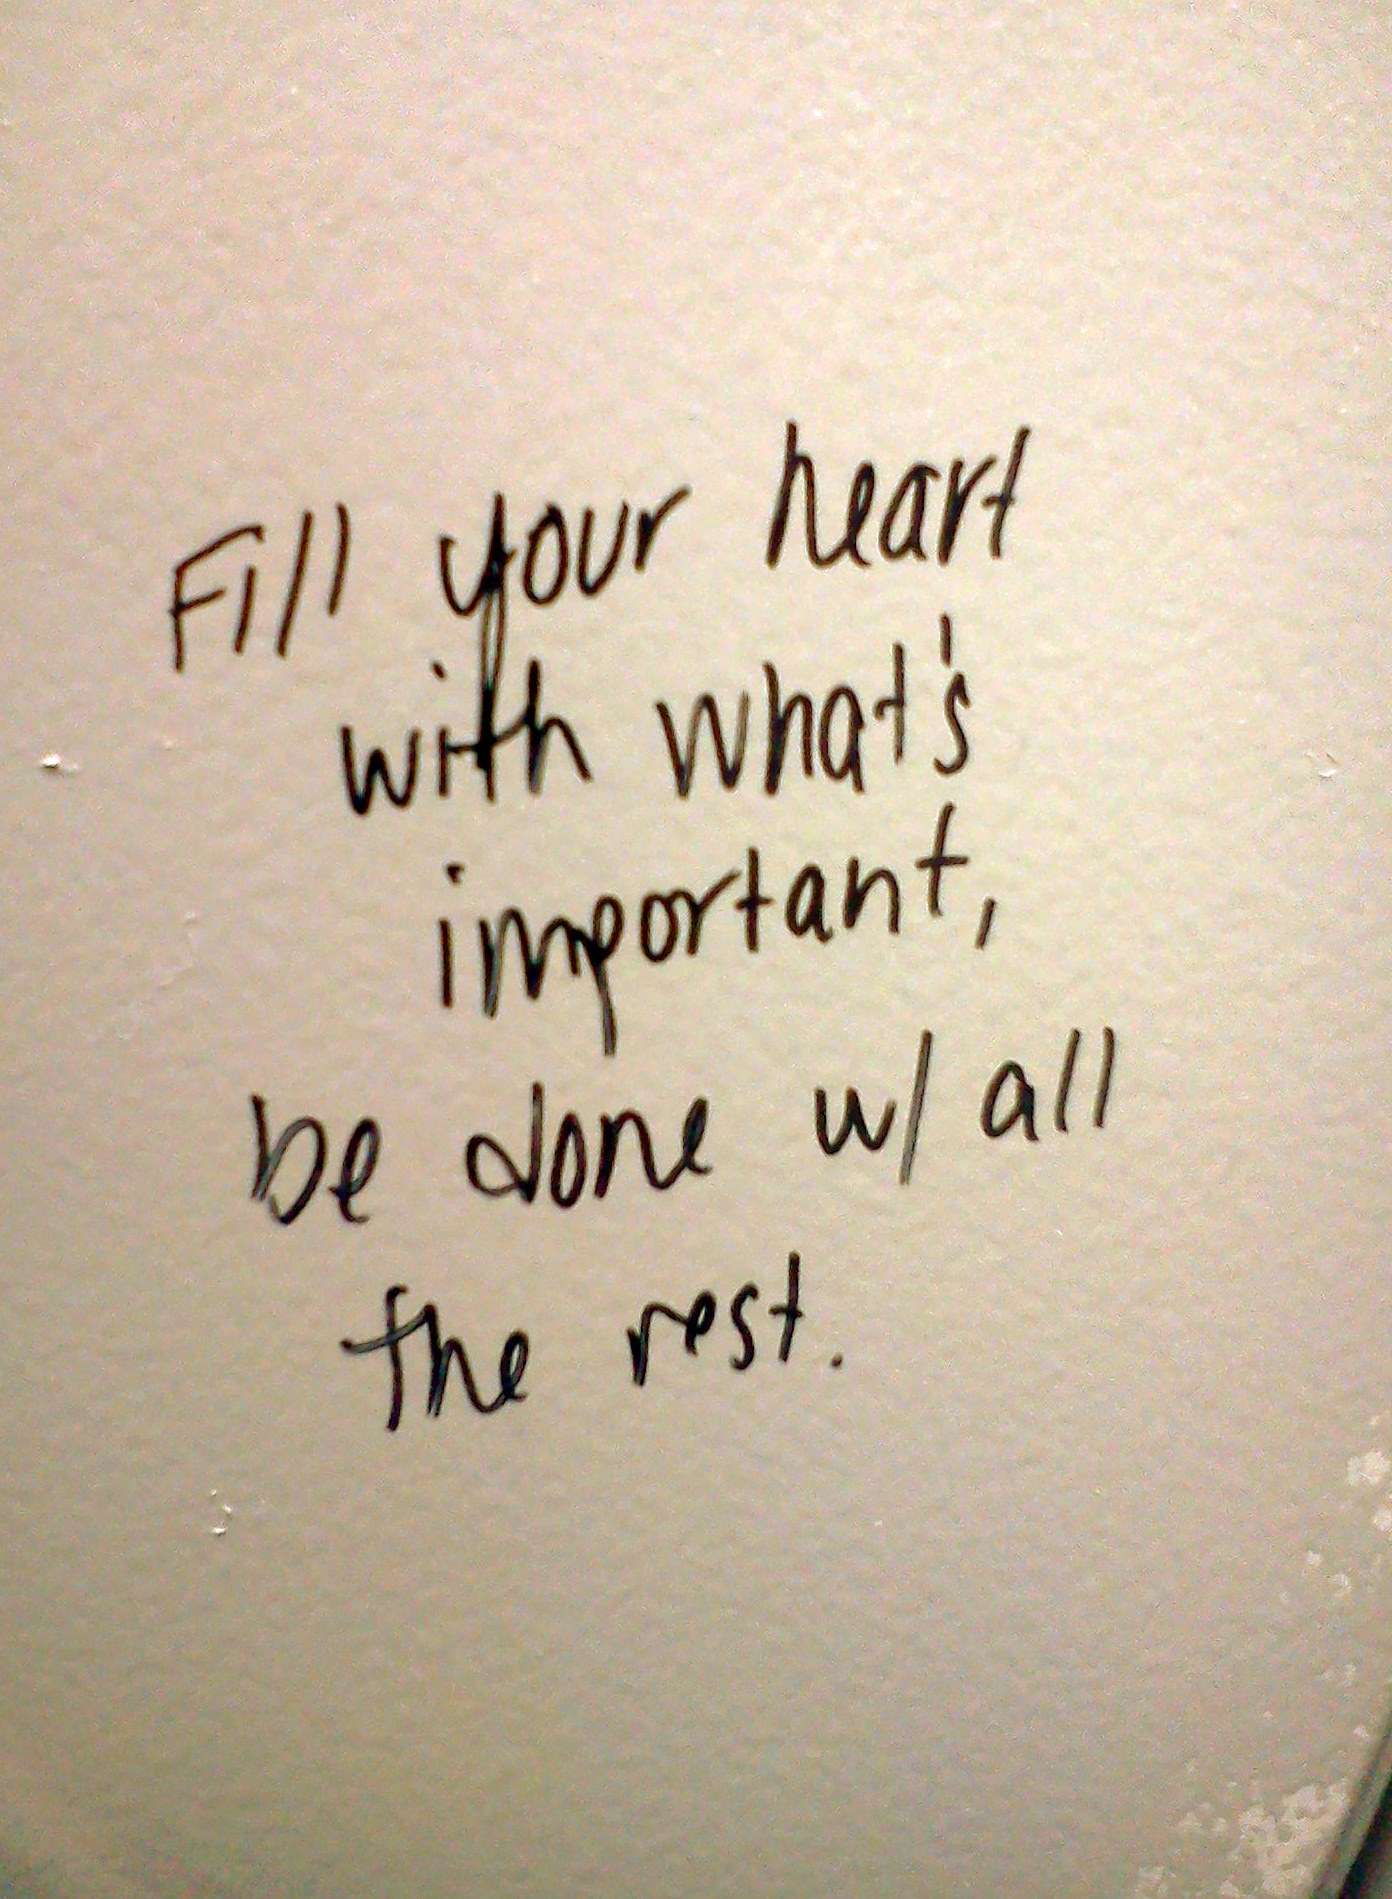 Fill your heart
with what's
important,
be done w/ all
the rest.